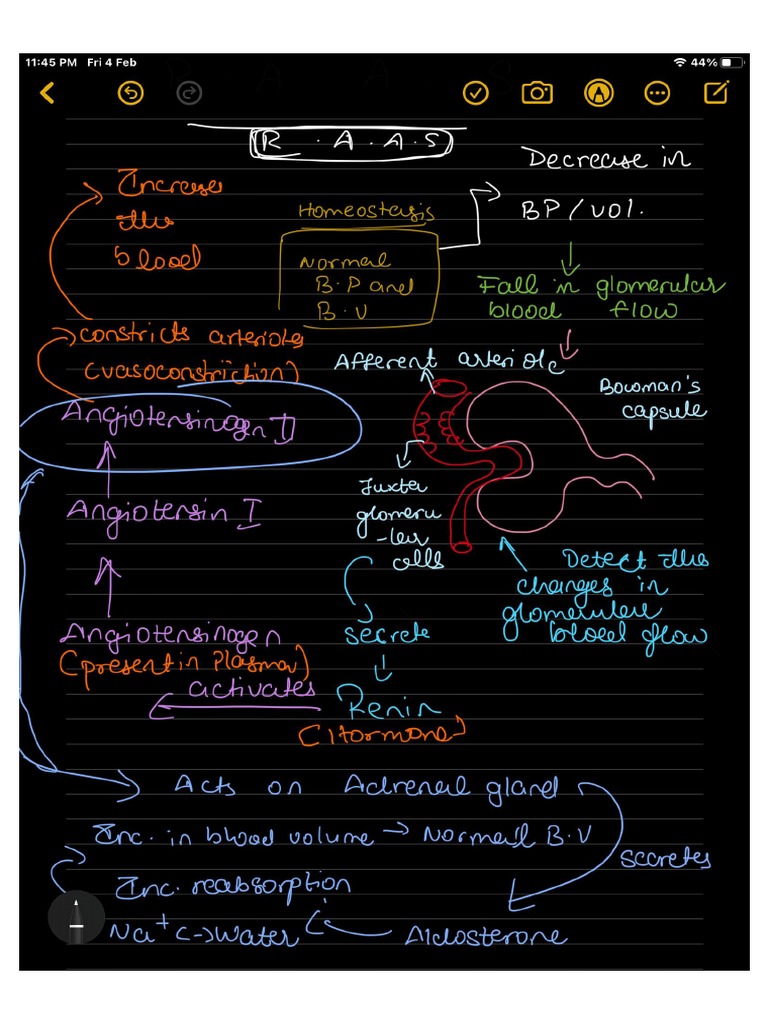 11:45 PM Fri 4 Feb
44%
R.A.A.S
Decrease in
BP/vol.
Increase
the
blood
Homeostasis
Normal
B.P and
B.V
Fall in glomerular
blood flow
constricts arterioles
(vasoconstriction)
Afferent arteriole
Bowman's
capsule
Angiotensinogen II
Angiotensin I
Juxta
glomeru
-lar
cells
Detect the
changes in
glomerular
blood flow
Angiotensinogen
(present in Plasma)
secrete
activates
Renin
(Hormone)
Acts on Adrenal gland
Inc. in blood volume → Normal B.V
secretes
Inc. reabsorption
Na+ <-> Water
Aldosterone